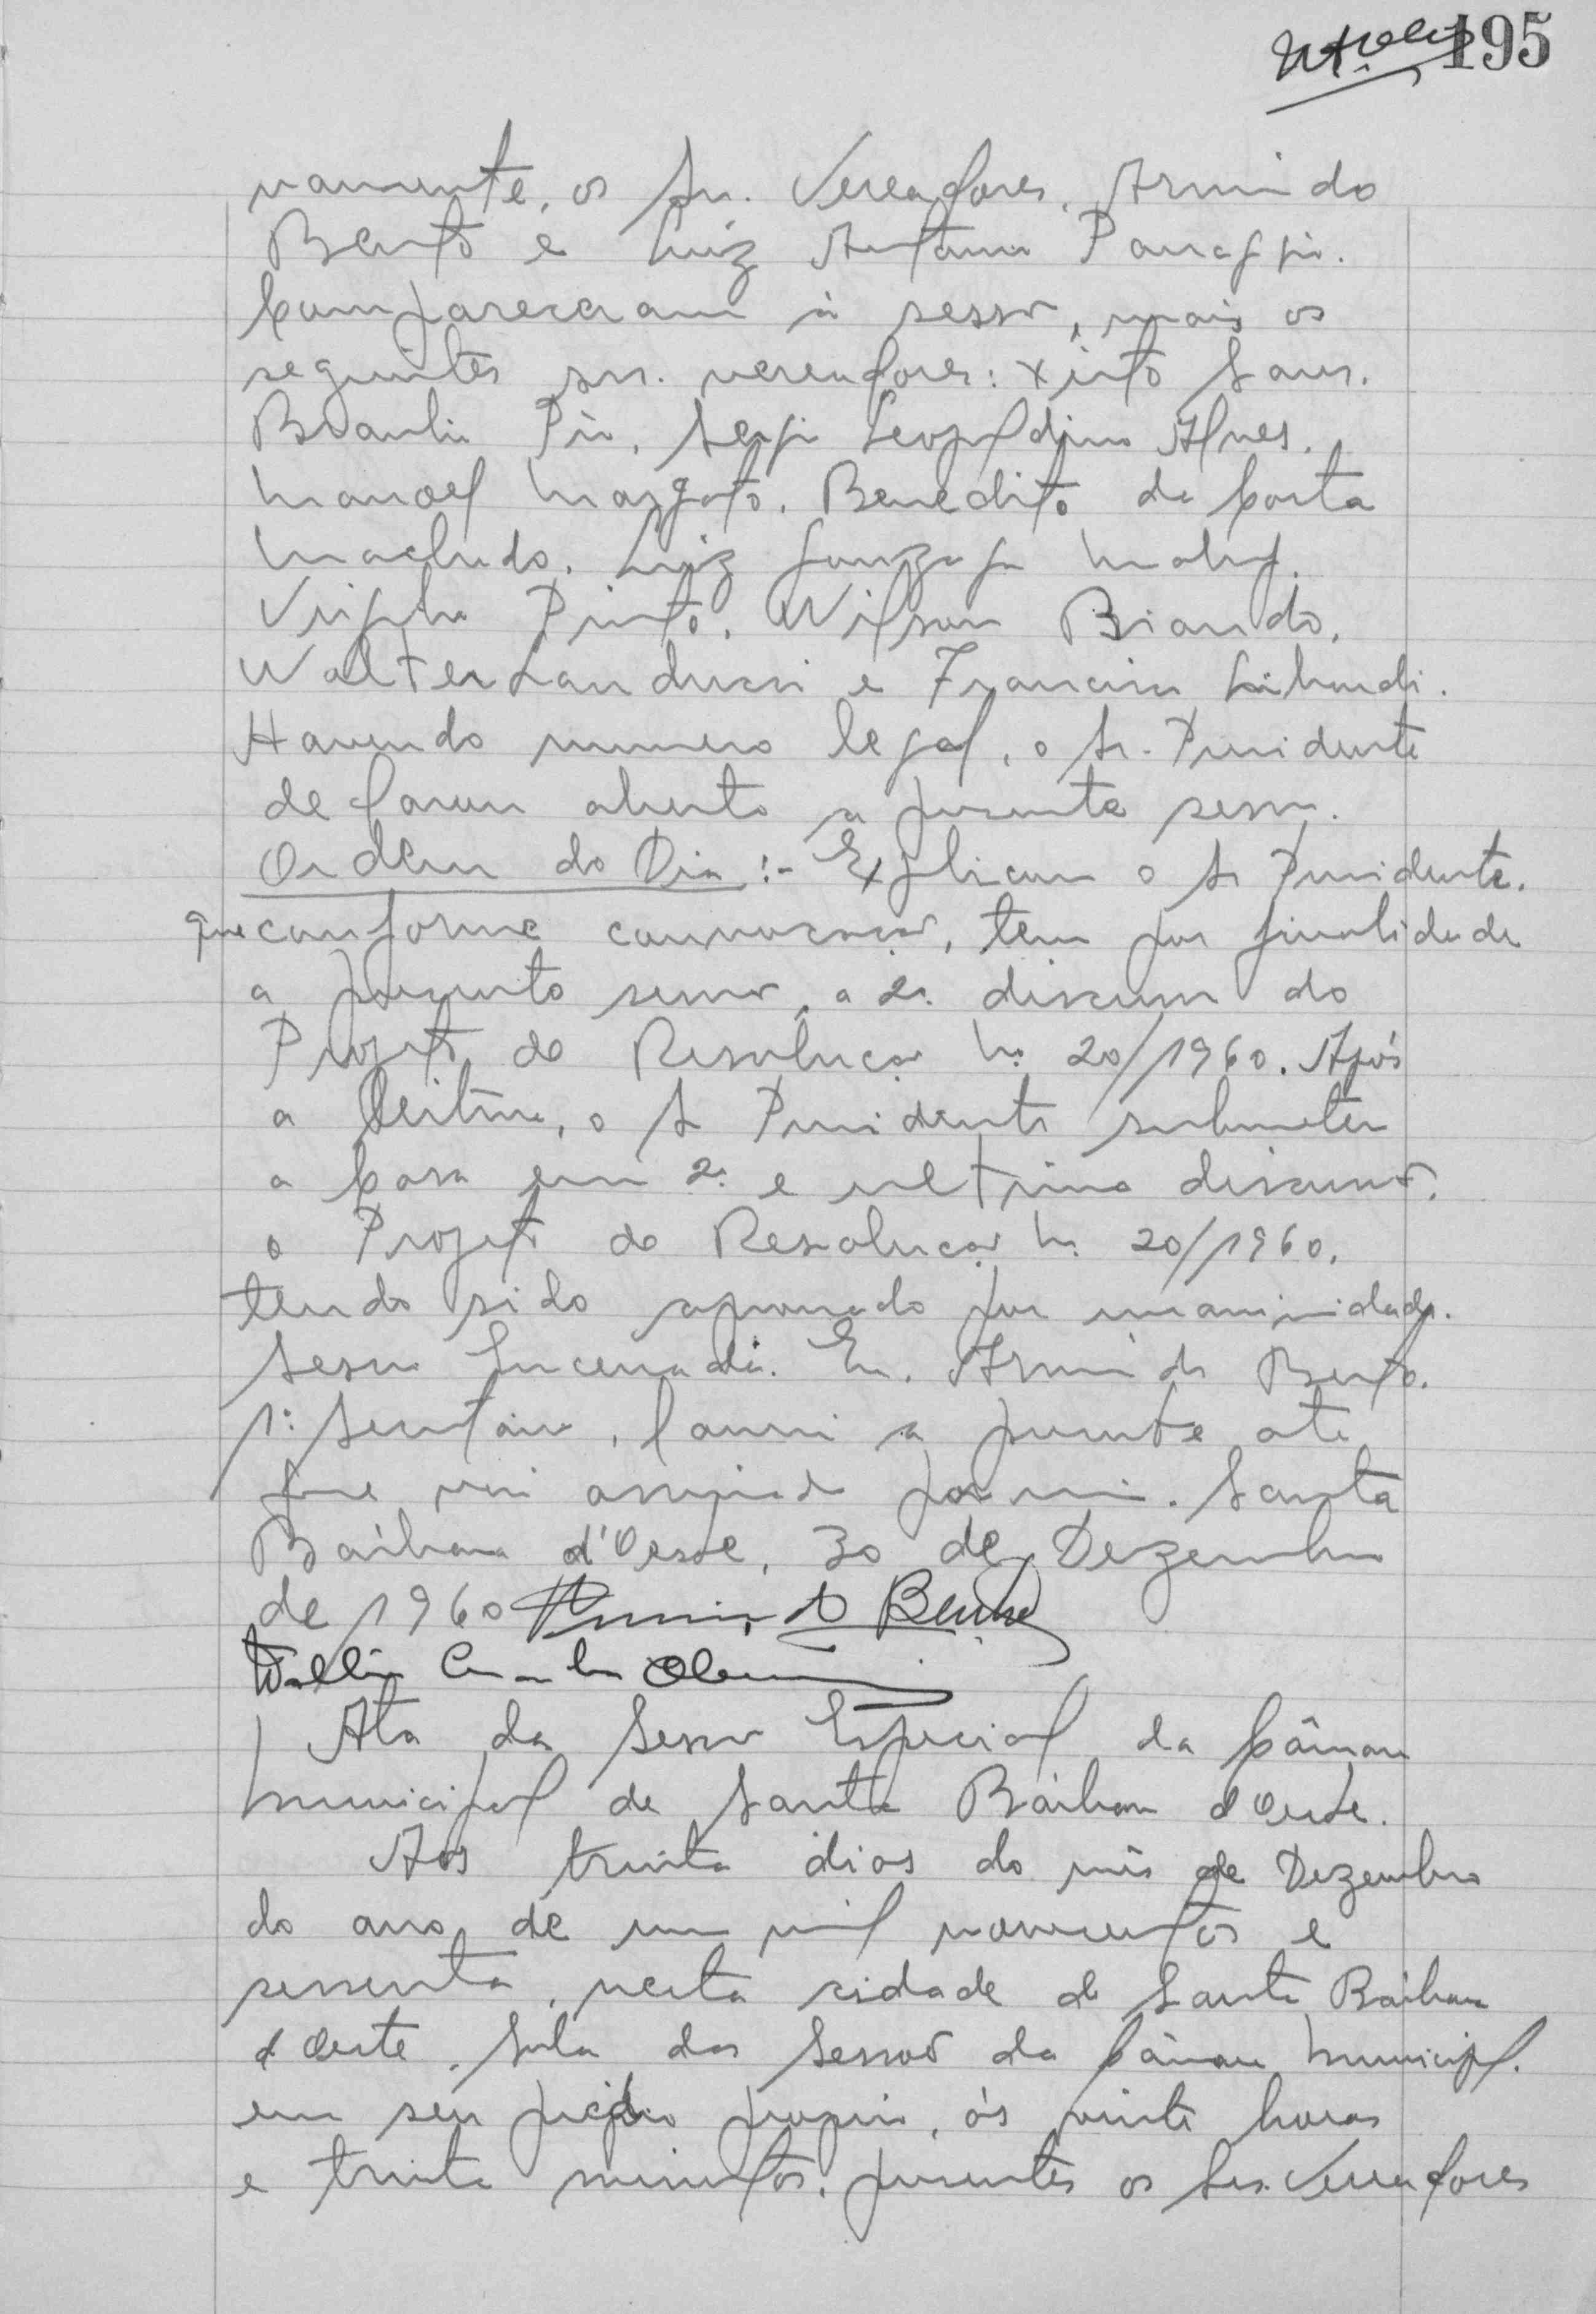 195
vamente, os Srs. Vereadores, Armindo
Bento e Luiz Antonio Panaggio.
Compareceram à sessão, mais os
seguintes srs. vereadores: Xisto Sans.
Braulio Pio, Sergio Leopoldino Alves.
Manoel Mazgoto. Benedito da Costa
Machado. Luiz Gonzaga
Pinto. Wilson Biondo.
Walter Landucci e Francisco
Havendo numero legal, o Sr. Presidente
declarou aberto a presente sessão.
Ordem do Dia :- Explicou o Sr Presidente.
que conforme convocação, tem por finalidade
a presente sessão, a 2ª. discussão do
Projeto de Resolução Nº 20/1960. Após
a leitura, o Sr Presidente submeteu
a Casa em 2ª. e ultima discussão,
o Projeto de Resolução Nº 20/1960.
tendo sido aprovado por unanimidade.
Sessão Encerrada. Eu. Armindo Bento.
1º: Secretario, lavrei a presente ata
que vai assinada por mim. Santa
Bárbara d'Oeste, 30 de Dezembro
de 1960 Armindo Bento
Ata da Sessão Especial da Câmara
Municipal de Santa Bárbara d'Oeste.
Aos trinta dias do mês de Dezembro
do ano de um mil novecentos e
sessenta, nesta cidade de Santa Bárbara
d'Oeste. Sala das Sessões da Câmara Municipal.
em seu prédio proprio, ás vinte horas
e trinta minutos, presentes os Srs. Vereadores